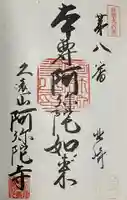 第八番
本尊阿弥陀如来
久遠山阿弥陀寺